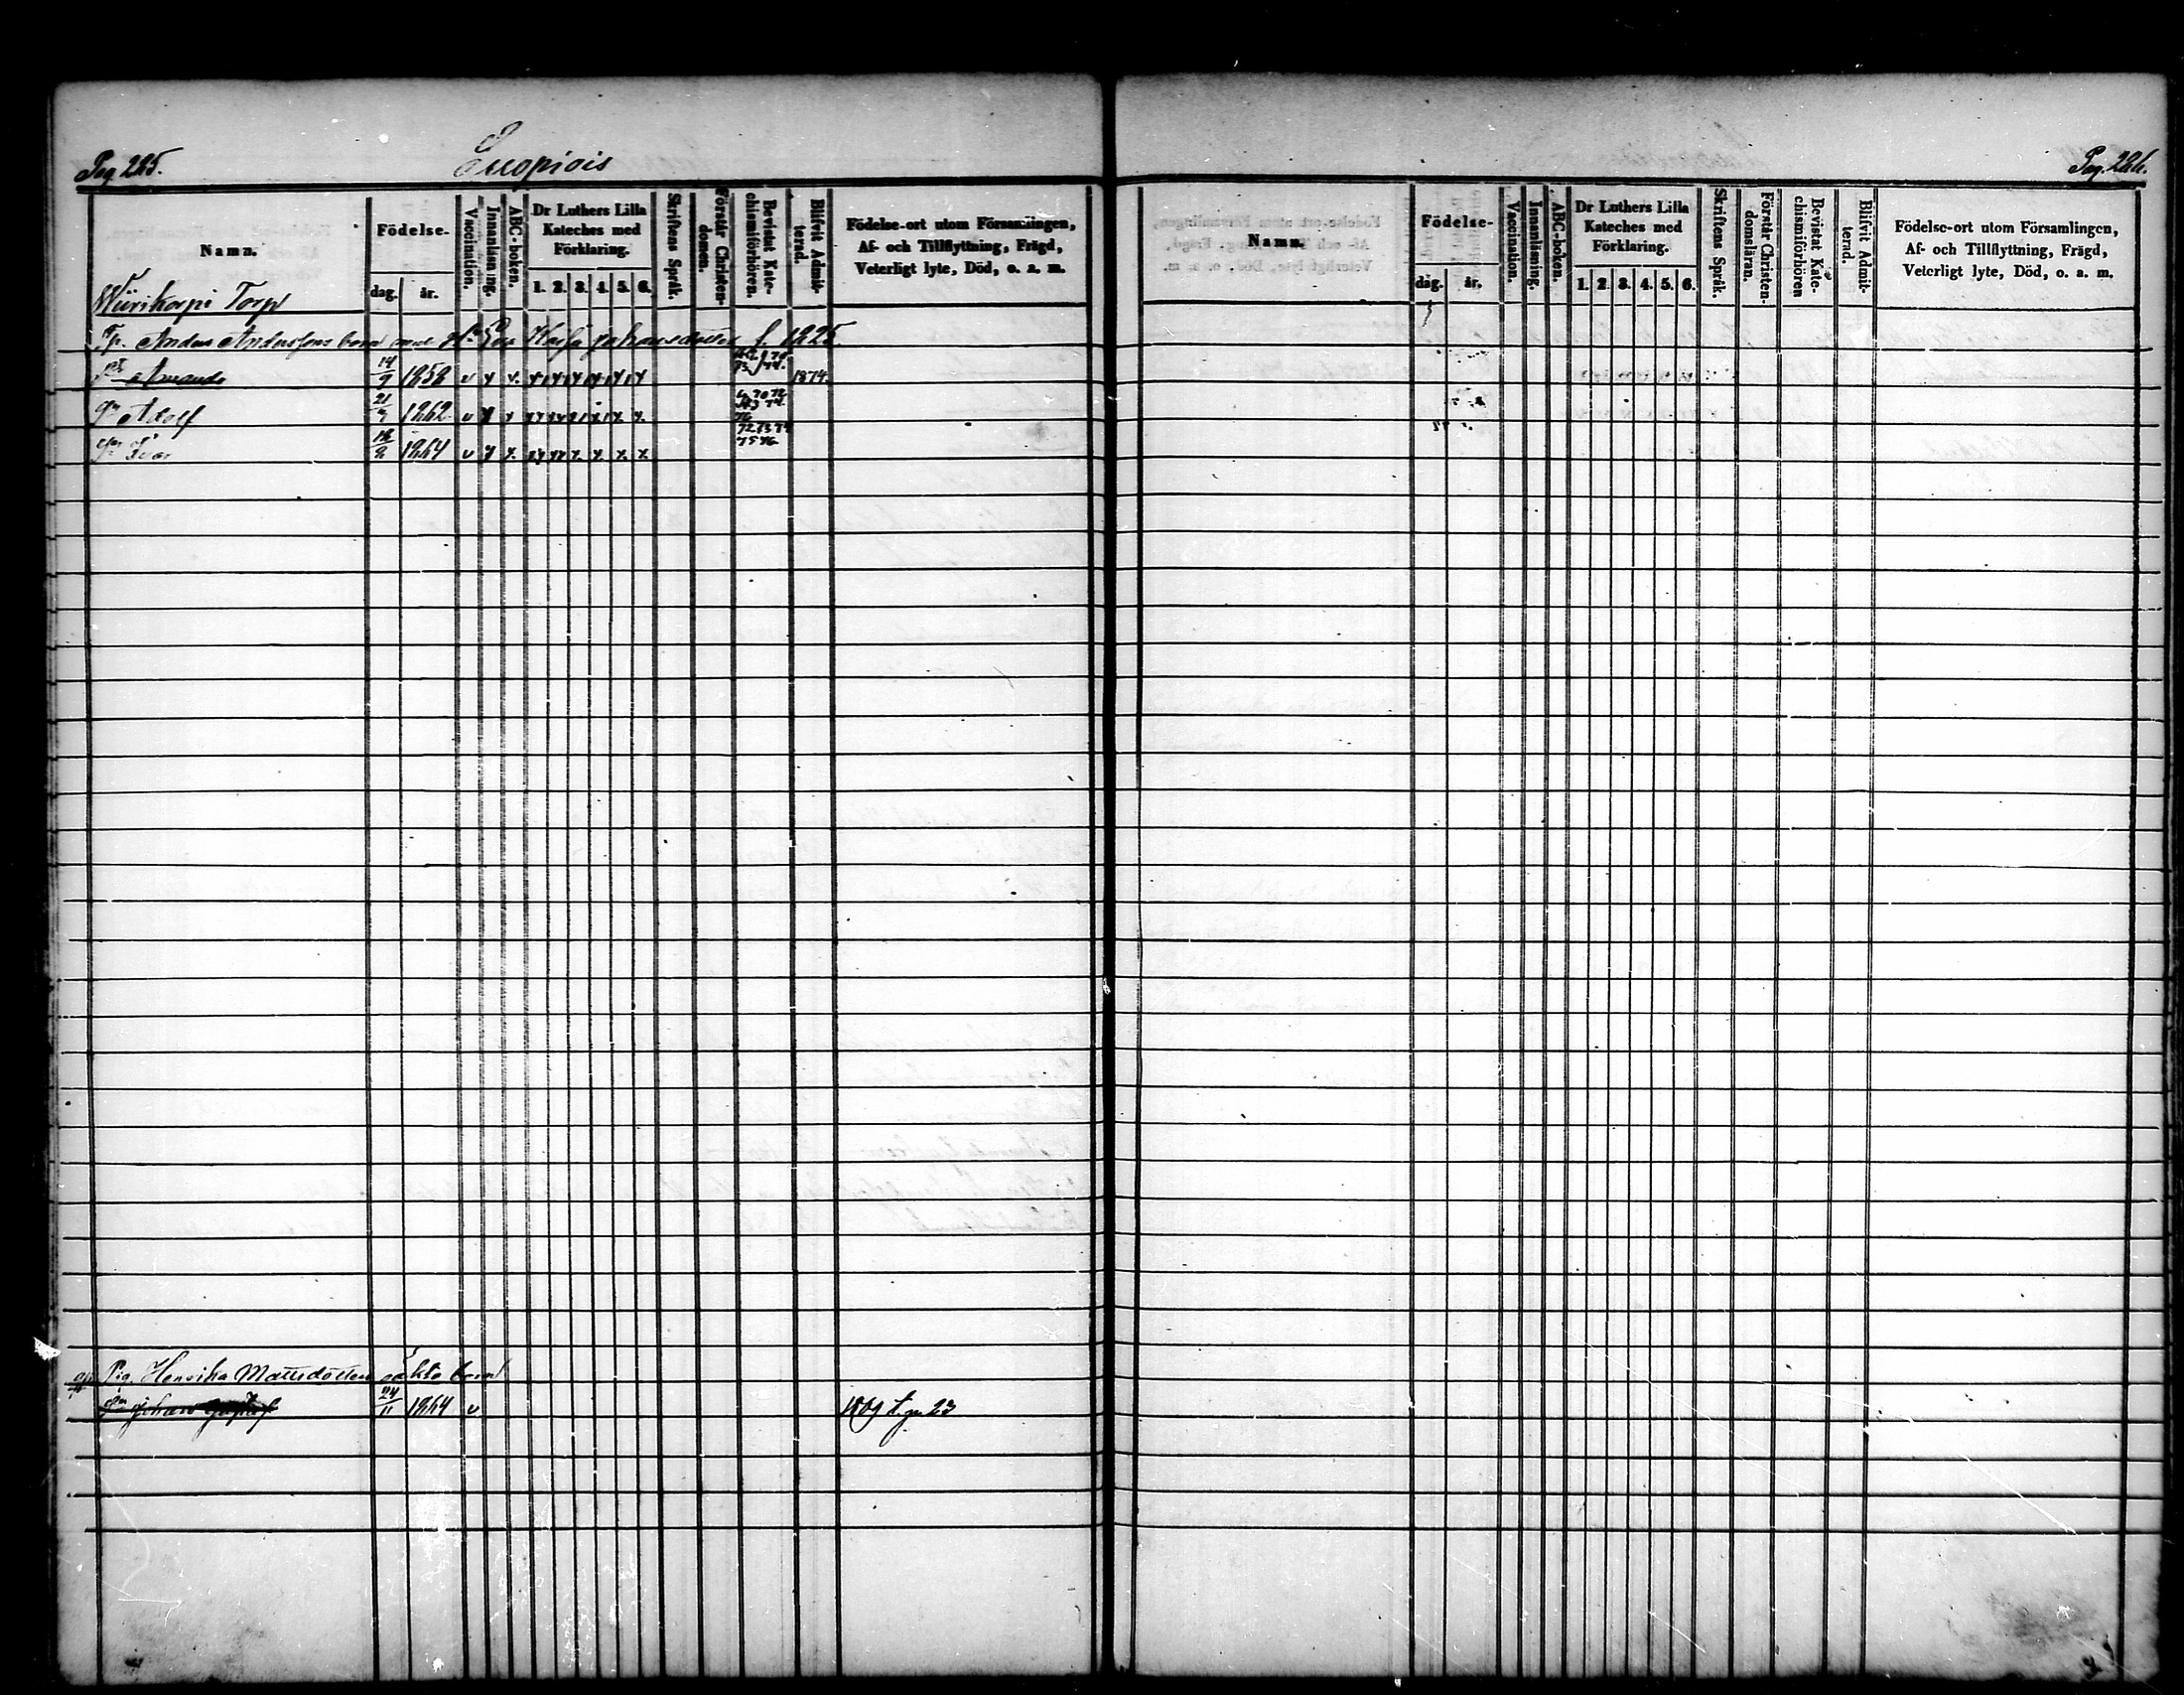 Pag. 225.
Luopiois
Namn.
Födelse-
dag. år.
Vaccination.
Innanläsning.
ABC-boken.
Dr Luthers Lilla Kateches med Förklaring.
1. 2. 3. 4. 5. 6.
Skriftens Språk.
Förstår Christen-domen.
Bevistat Kate-chismiförhören.
Blifvit Admit-terad.
Födelse-ort utom Församlingen, Af- och Tillflyttning, Frägd, Veterligt lyte, Död, o. a. m.
Torp
Tp. Anders Anderssons barn med Johansdotter f. 1825.
Amanda 14/9 1858 v x x x x x x x x 1874.
Adolf 1862 v x x x x x x x x
Ivar 1864 v x x x x x x x x
Pig. Henrika Mattsdotters oäkta barn
Johan Gustaf 24/11 1864 v 1869 23
Pag. 226.
Namn.
Födelse-
dag. år.
Vaccination.
Innanläsning.
ABC-boken.
Dr Luthers Lilla Kateches med Förklaring.
1. 2. 3. 4. 5. 6.
Skriftens Språk.
Förstår Christen-domsläran.
Bevistat Kate-chismiförhören
Blifvit Admit-terad.
Födelse-ort utom Församlingen, Af- och Tillflyttning, Frägd, Veterligt lyte, Död, o. a. m.